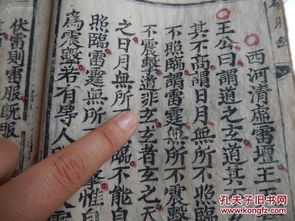 西河清虛雷壇王
王公曰謂道之道其
其不高謂日月無所不照
不照臨謂雷霆無所不震
不震擊道非玄玄者玄之
之日月無所臨不能自
照臨雷霆無所
爲震擊若有學人
伏雷則雷服既服